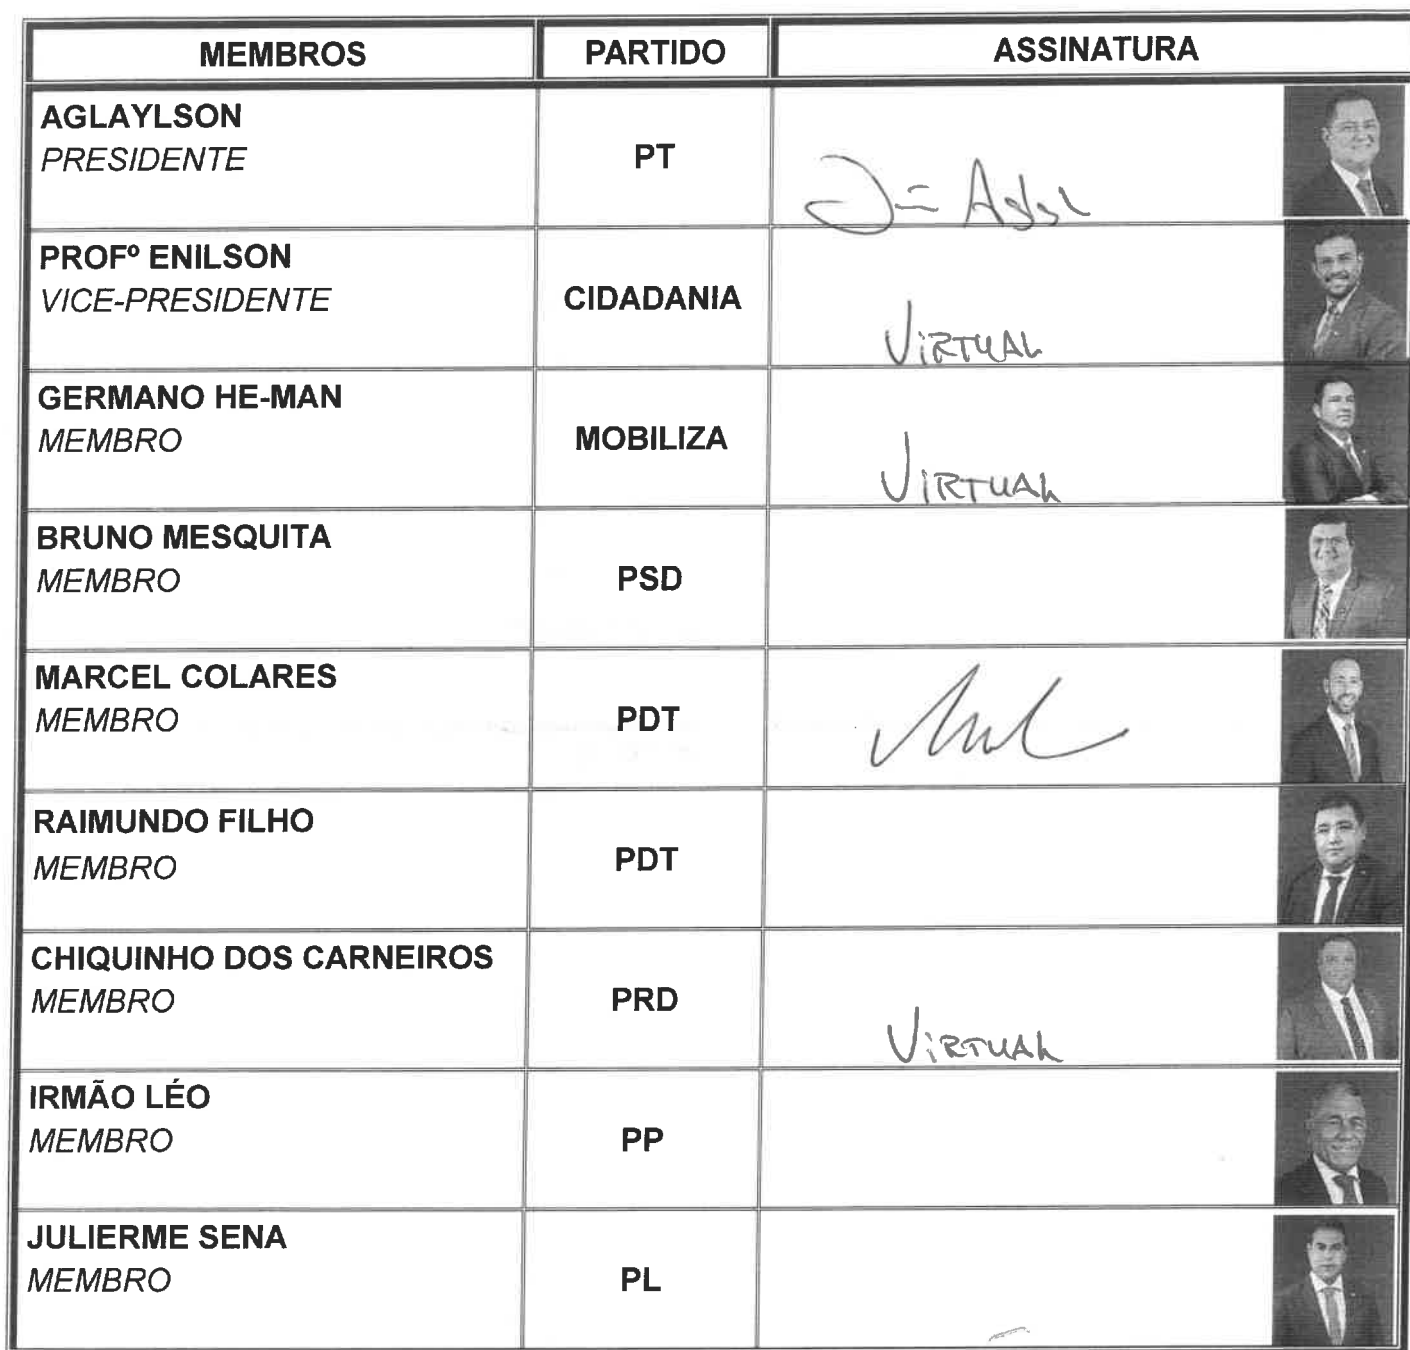 MEMBROS PARTIDO ASSINATURA
AGLAYLSON
PRESIDENTE
PT
PROFº ENILSON
VICE-PRESIDENTE
CIDADANIA
VIRTUAL
GERMANO HE-MAN
MEMBRO
MOBILIZA
VIRTUAL
BRUNO MESQUITA
MEMBRO
PSD
MARCEL COLARES
MEMBRO
PDT
RAIMUNDO FILHO
MEMBRO
PDT
CHIQUINHO DOS CARNEIROS
MEMBRO
PRD
VIRTUAL
IRMÃO LÉO
MEMBRO
PP
JULIERME SENA
MEMBRO
PL